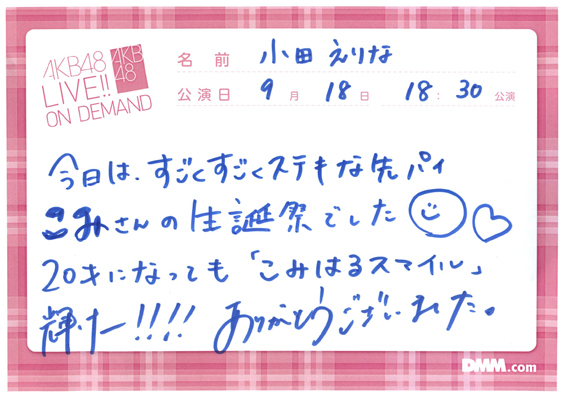 AKB48
LIVE!!
ON DEMAND
AKB
48
名前 小田えりな
公演日 9月18日 18:30公演
今日は、すごくすごくステキな先パイ
こみさんの生誕祭でした
20才になっても「こみはるスマイル」
輝けー!!!! ありがとうございました。
DMM.com